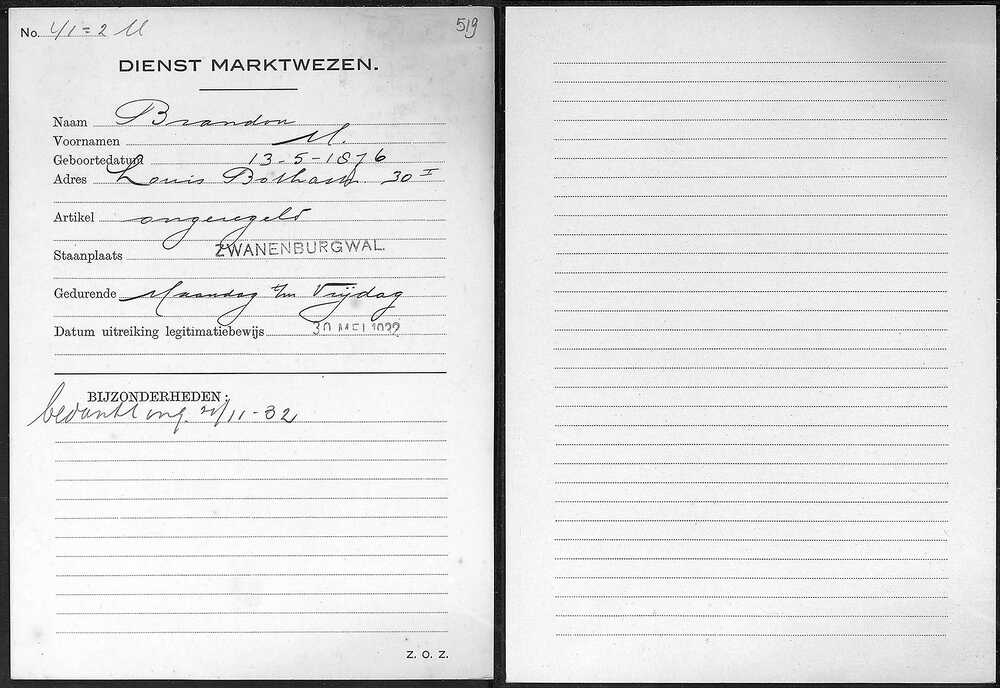 No. 41=2 M 519
DIENST MARKTWEZEN.
Naam Brandon
Voornamen M.
Geboortedatum 13-5-1876
Adres Louis Bothastr. 30 I
Artikel ongeregeld
Staanplaats ZWANENBURGWAL.
Gedurende Maandag t/m Vrijdag
Datum uitreiking legitimatiebewijs 30 MEI 1922
BIJZONDERHEDEN:
bedankt ing. /11-32
Z. O. Z.